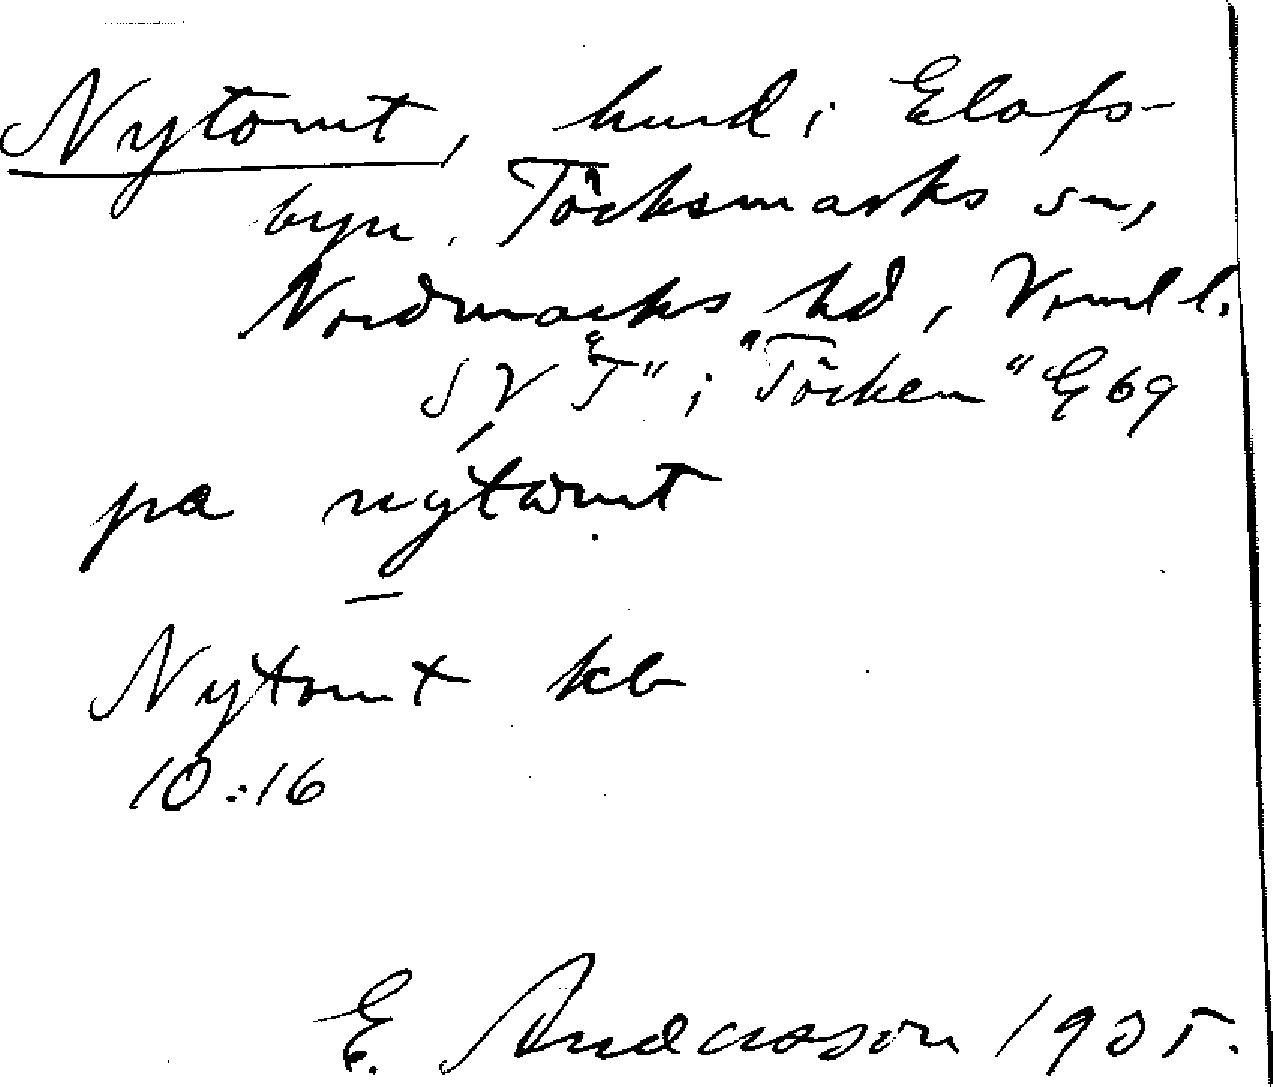 Nytomt, hmd i Elofs-
byn. Töcksmarks sn,
Nordmarks hd, Vrml l.
SV "T" i "Töcken" G69
pa nytωmt
Nytomt kb
10:16
E. Andersson 1935.